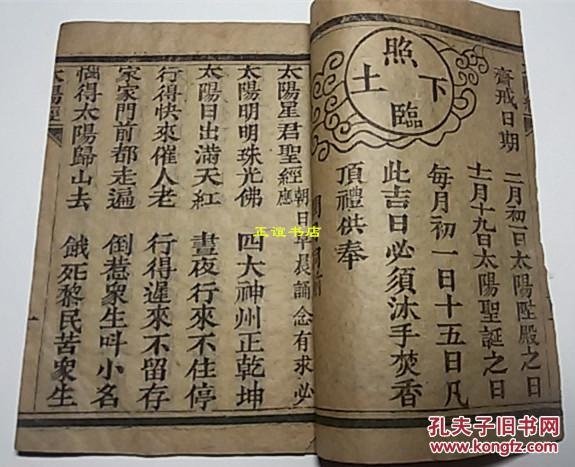 照臨下土
齊戒日期
二月初一日太陽陞殿之日
十一月十九日太陽聖誕之日
每月初一日十五日凡
此吉日必須沐手焚香
頂禮供奉
太陽星君聖經 朝日早晨誦念有求必應
太陽明明珠光佛 四大神州正乾坤
太陽日出滿天紅 晝夜行來不住停
行得快來催人老 行得遲來不留存
家家門前都走遍 倒惹衆生叫小名
惱得太陽歸山去 餓死黎民苦衆生
太陽經
正谊书店
孔夫子旧书网